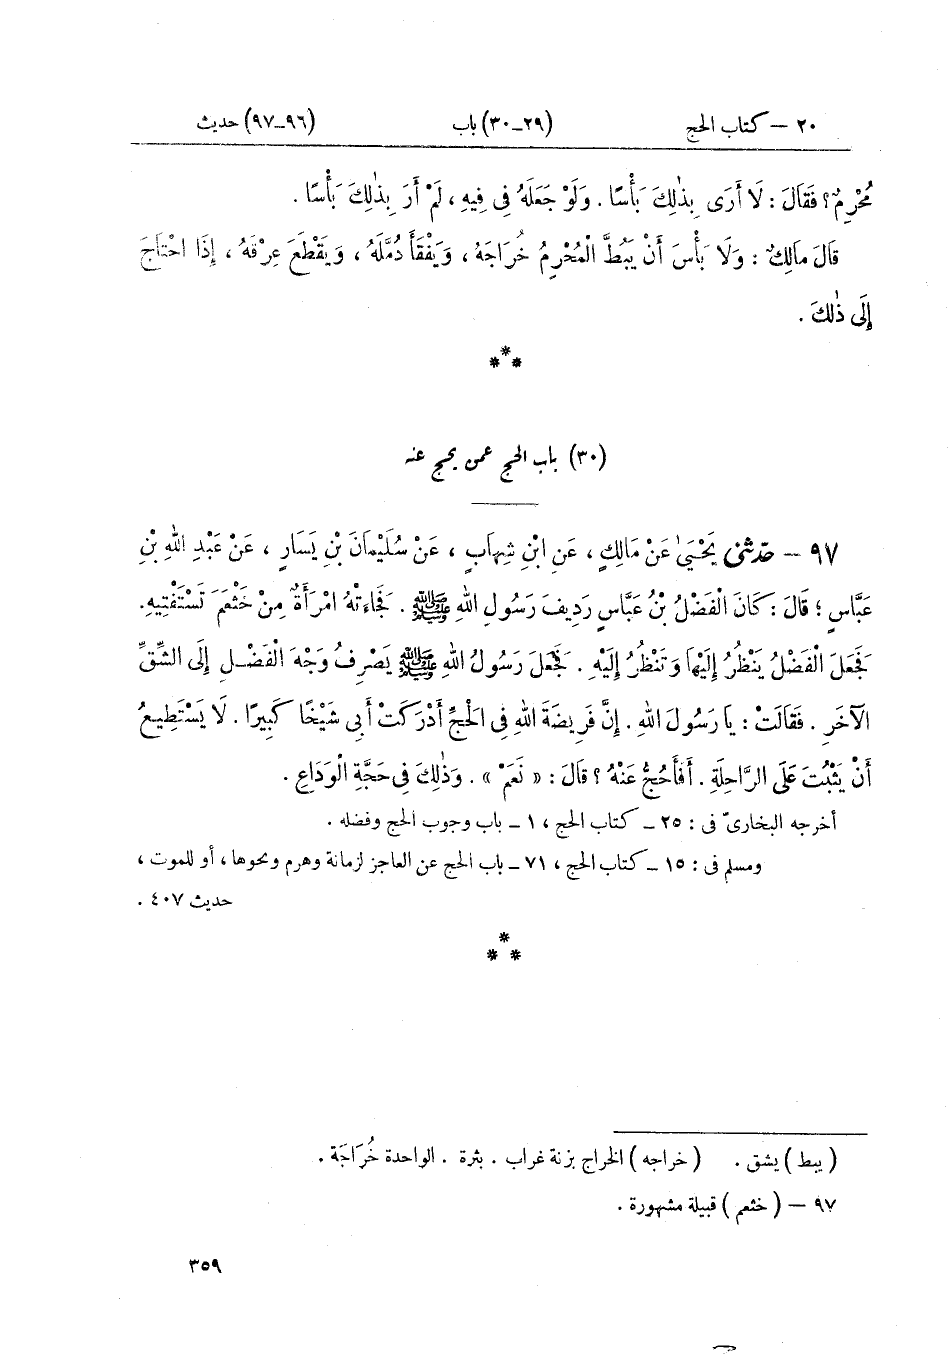 ٢٠ – كتاب الحج (٢٩–٣٠) باب (٩٦–٩٧) حديث
مُحْرِمٌ؟ فَقَالَ: لَا أَرَى بِذٰلِكَ بَأْسًا. وَلَوْ جَعَلَهُ فِى فِيهِ، لَمْ أَرَ بِذٰلِكَ بَأْسًا.
قَالَ مَالِكٌ: وَلَا بَأْسَ أَنْ يَبُطَّ الْمُحْرِمُ خُرَاجَهُ، وَيَفْقَأَ دُمَّلَهُ، وَيَقْطَعَ عِرْقَهُ، إِذَا احْتَاجَ
إِلَى ذٰلِكَ.
***
(٣٠) باب الحج عمن يحج عنه
٩٧ – حدّثنى يَحْيَىٰ عَنْ مَالِكٍ، عَنِ ابْنِ شِهَابٍ، عَنْ سُلَيْمَانَ بْنِ يَسَارٍ، عَنْ عَبْدِ اللهِ بْنِ
عَبَّاسٍ؛ قَالَ: كَانَ الْفَضْلُ بْنُ عَبَّاسٍ رَدِيفَ رَسُولِ اللهِ ﷺ. فَجَاءَتْهُ امْرَأَةٌ مِنْ خَثْعَمَ تَسْتَفْتِيهِ.
فَجَعَلَ الْفَضْلُ يَنْظُرُ إِلَيْهَا وَتَنْظُرُ إِلَيْهِ. فَجَعَلَ رَسُولُ اللهِ ﷺ يَصْرِفُ وَجْهَ الْفَضْلِ إِلَى الشِّقِّ
الْآخَرِ. فَقَالَتْ: يَا رَسُولَ اللهِ. إِنَّ فَرِيضَةَ اللهِ فِى الْحَجِّ أَدْرَكَتْ أَبِى شَيْخًا كَبِيرًا. لَا يَسْتَطِيعُ
أَنْ يَثْبُتَ عَلَى الرَّاحِلَةِ. أَفَأَحُجُّ عَنْهُ؟ قَالَ: «نَعَمْ». وَذٰلِكَ فِى حَجَّةِ الْوَدَاعِ.
أخرجه البخارىّ فى: ٢٥ – كتاب الحج، ١ – باب وجوب الحج وفضله.
ومسلم فى: ١٥ – كتاب الحج، ٧١ – باب الحج عن العاجز لزمانة وهرم ونحوها، أو للموت،
حديث ٤٠٧.
***
(يبط) يشق. (خراجه) الخراج بزنة غراب. بثرة. الواحدة خُرَاجَة.
٩٧ – (خثعم) قبيلة مشهورة.
٣٥٩